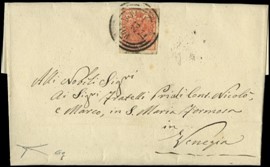 Alli Nobili Sigri
Ai Sigri Fratelli Priuli Nicolò
e Marco, in S. Maria Formosa
in
Venezia